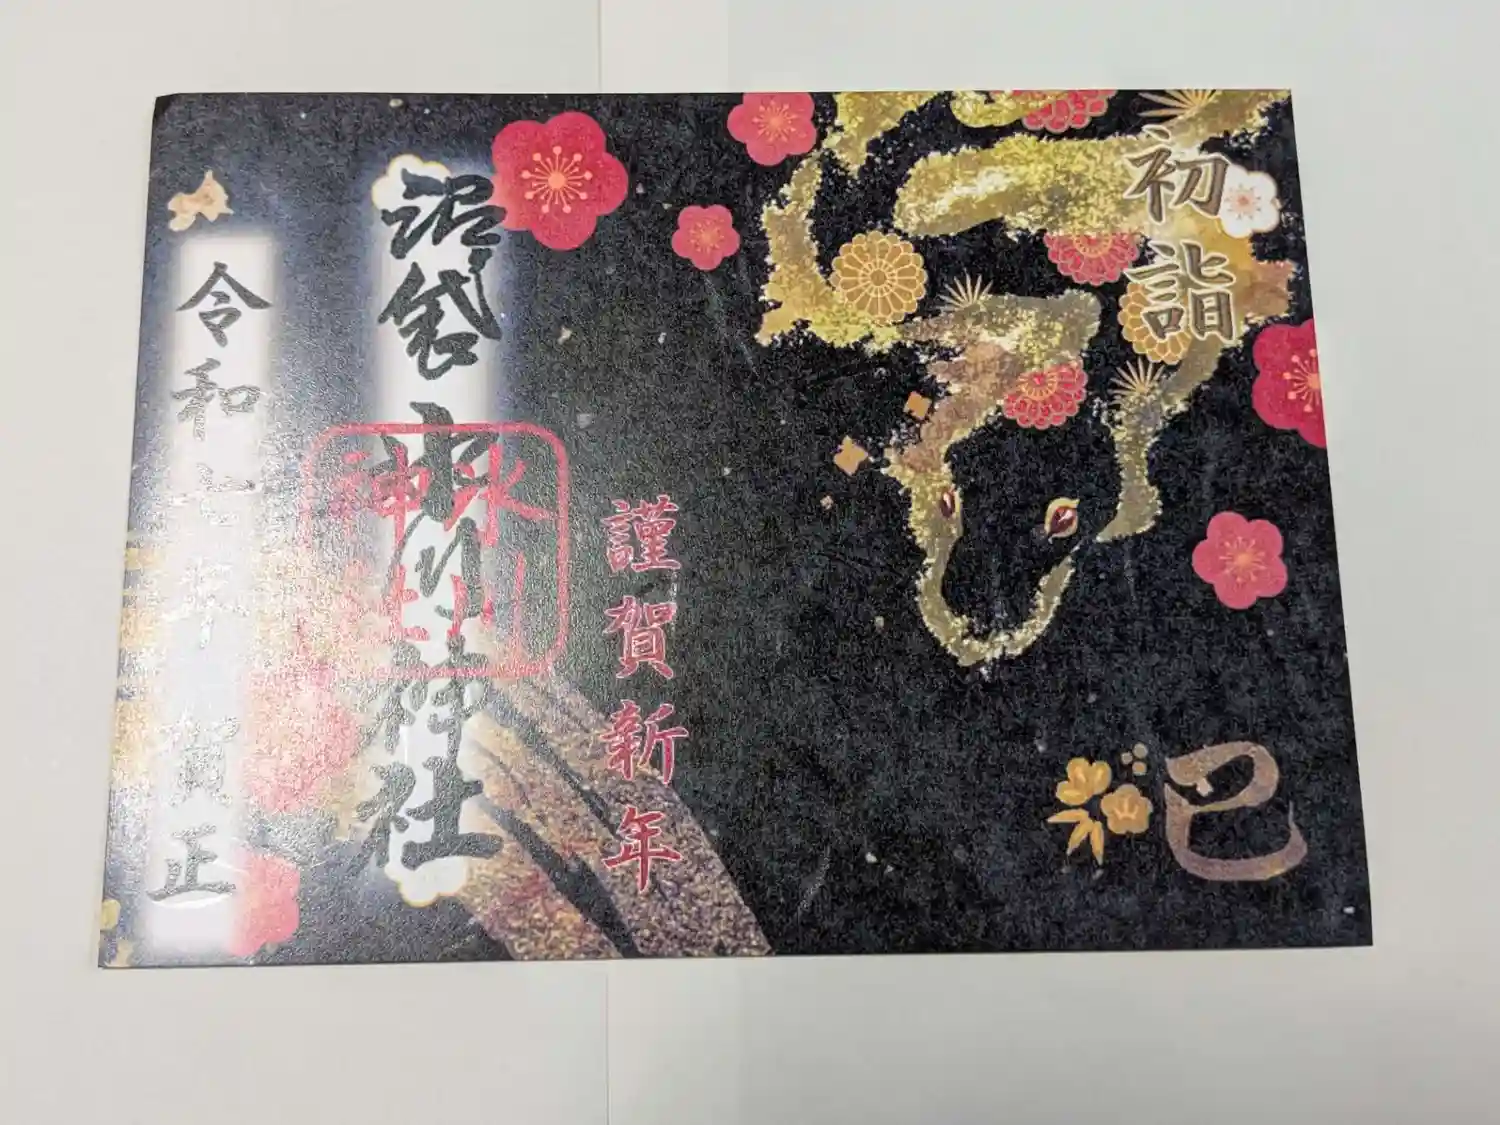 初詣
巳
謹賀新年
沼袋氷川神社
氷川
神社
令和七年賀正